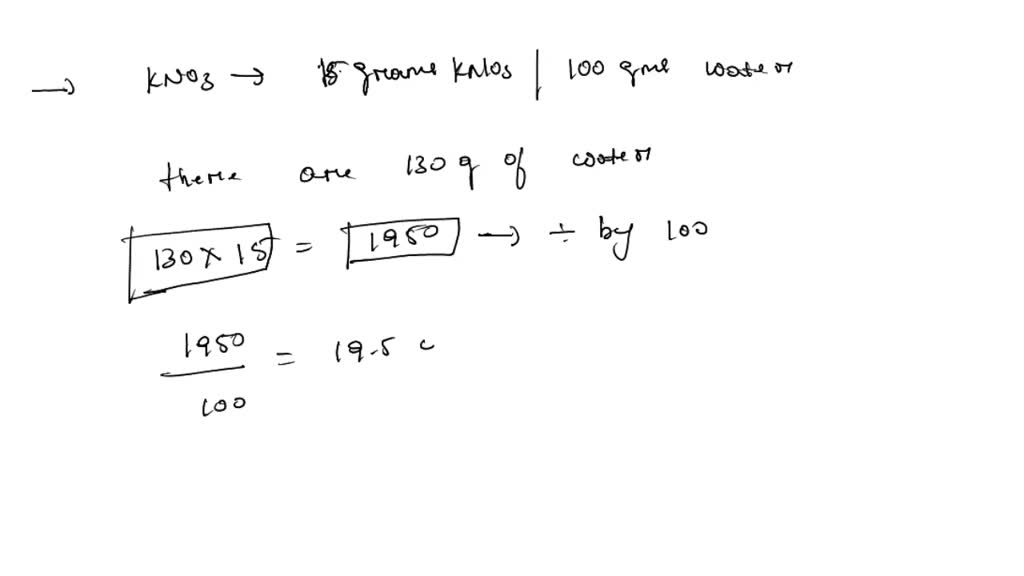 → KNO3 → 15 grams KNO3 | 100 gms water
there are 130 g of water
130 × 15 = 1950 → ÷ by 100
1950 / 100 = 19.5 c